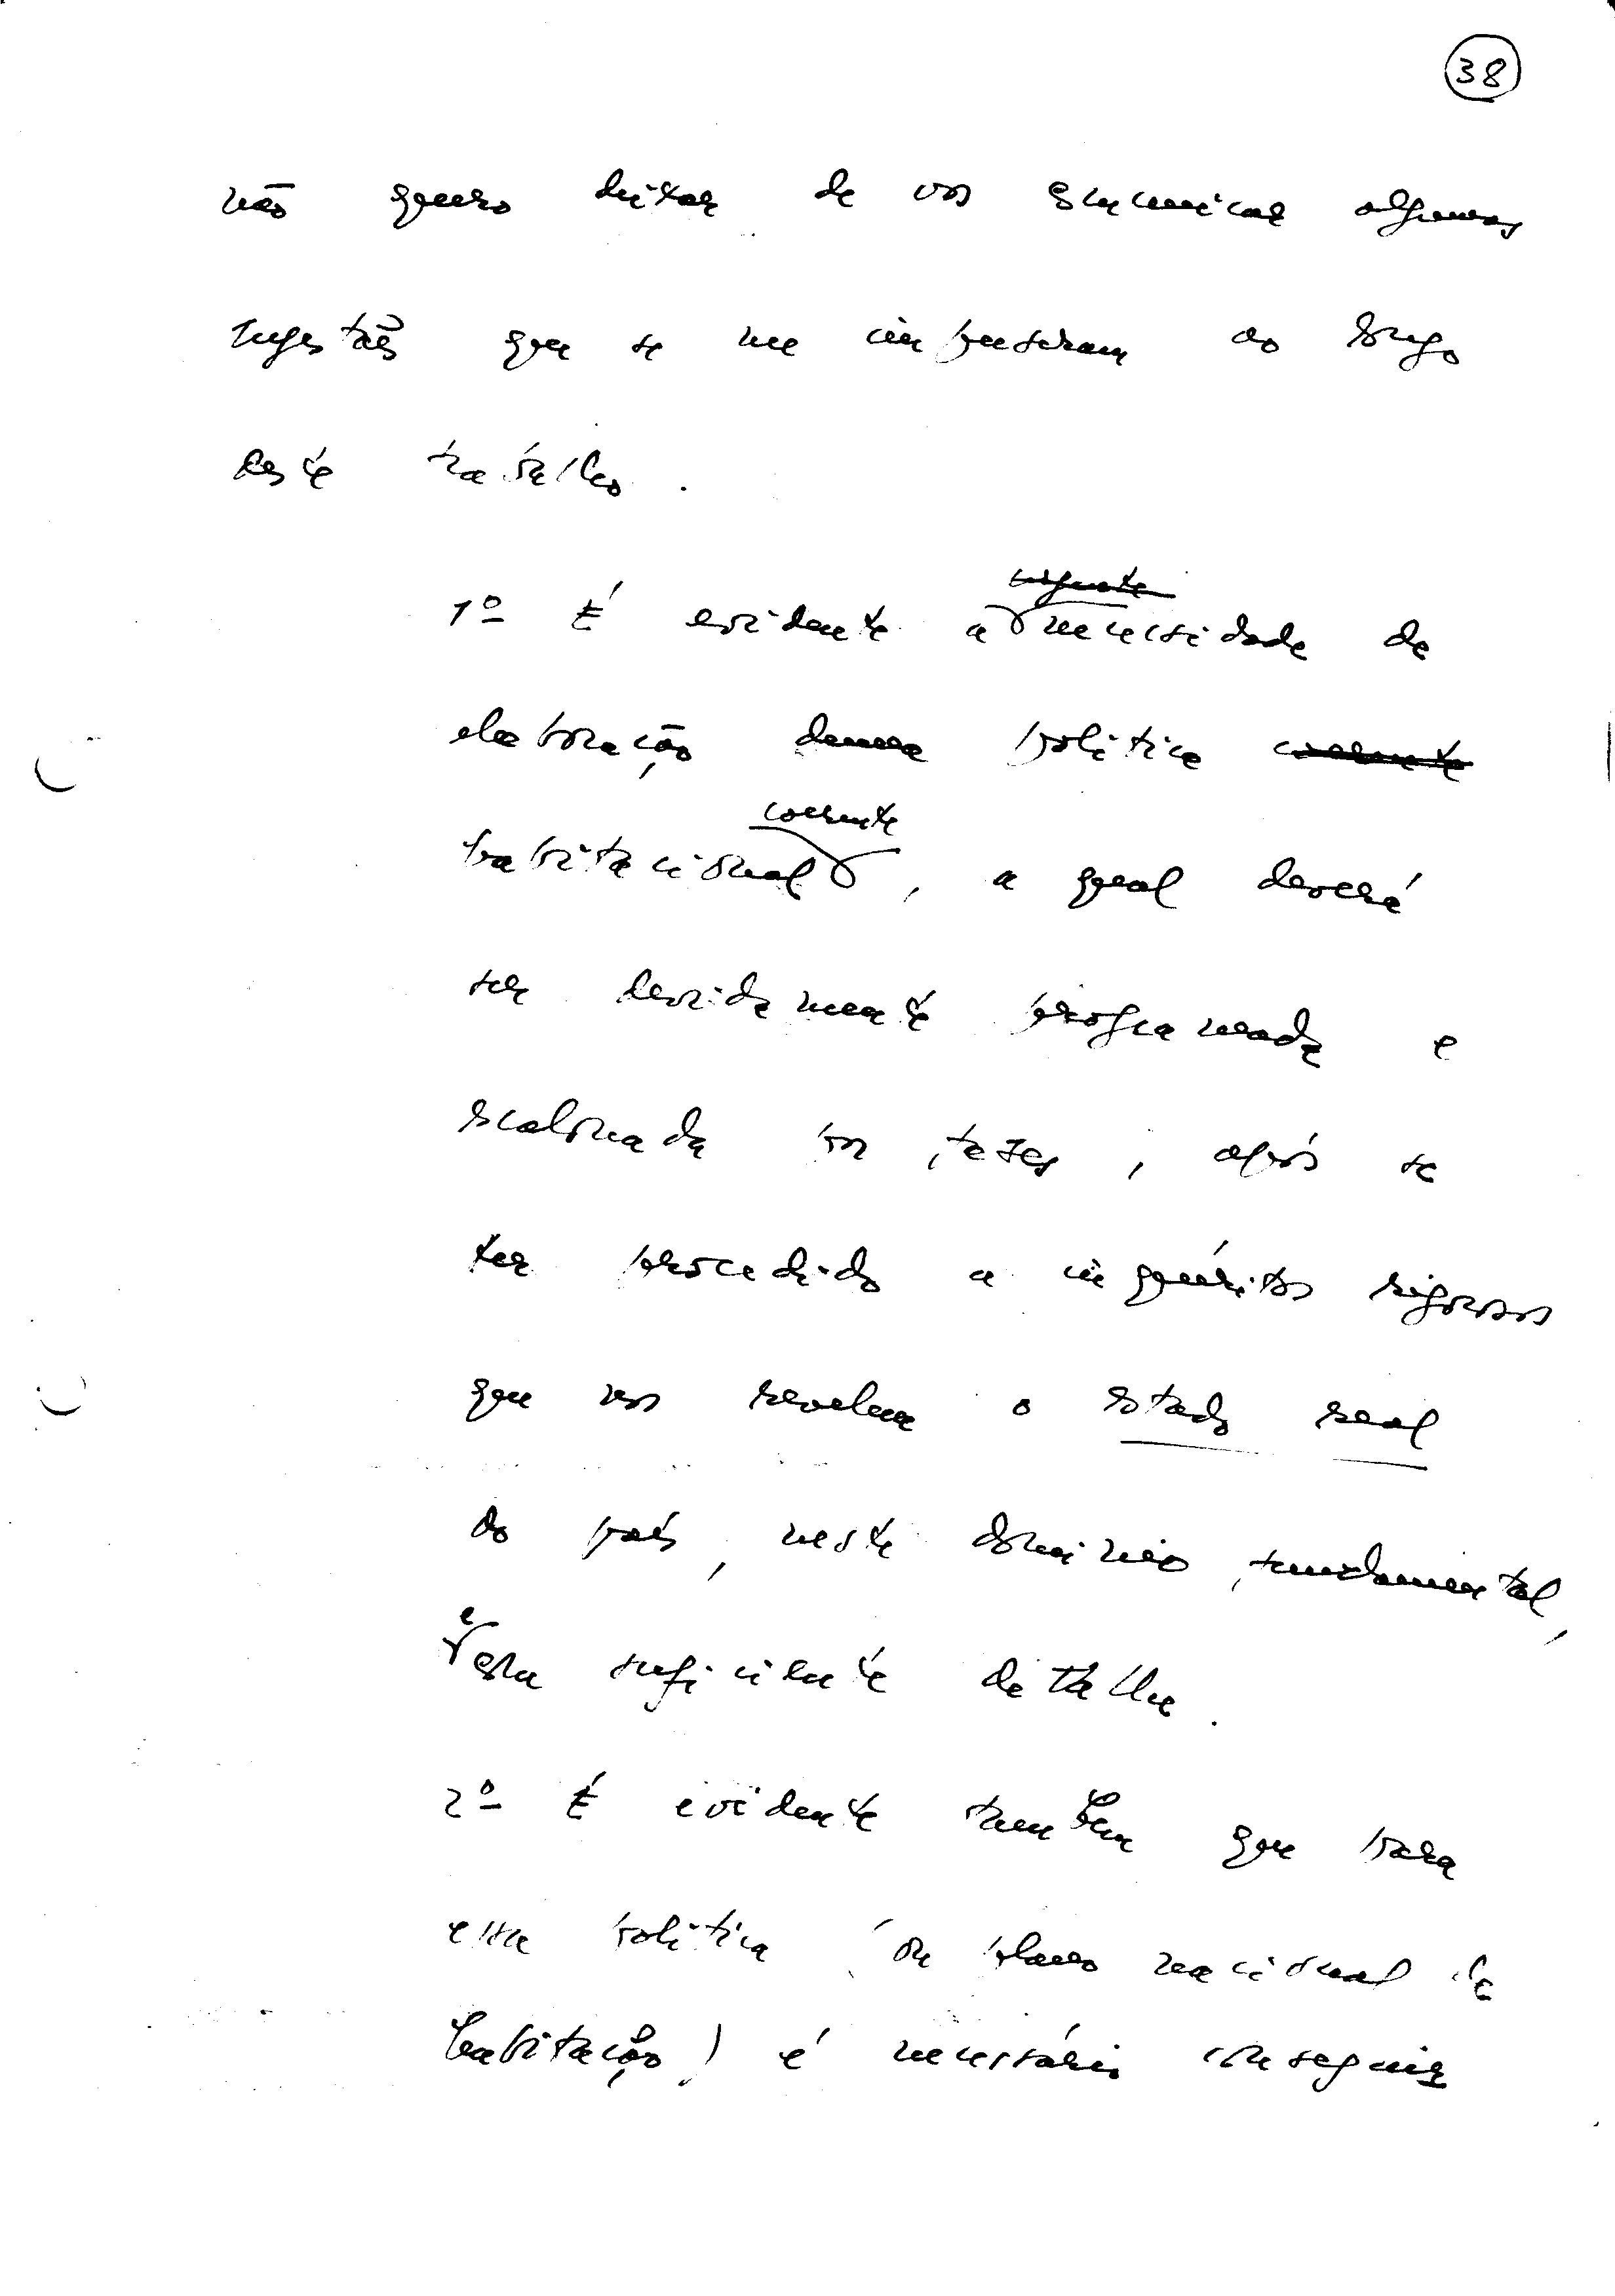 38
não quero deixar de vos comunicar algumas
sugestões que se me impuseram ao longo
deste trabalho.
urgente
1º É evidente a necessidade de
elaboração duma política coerente
coerente
habitacional, a qual deverá
ser devidamente programada e
escalonada por fases, após se
ter procedido a inquéritos rigorosos
que nos revelem o estado real
do país, neste domínio fundamental,
e
com suficiente detalhe.
2º É evidente também que para
essa política (ou plano nacional de
habitação) é necessário conseguir